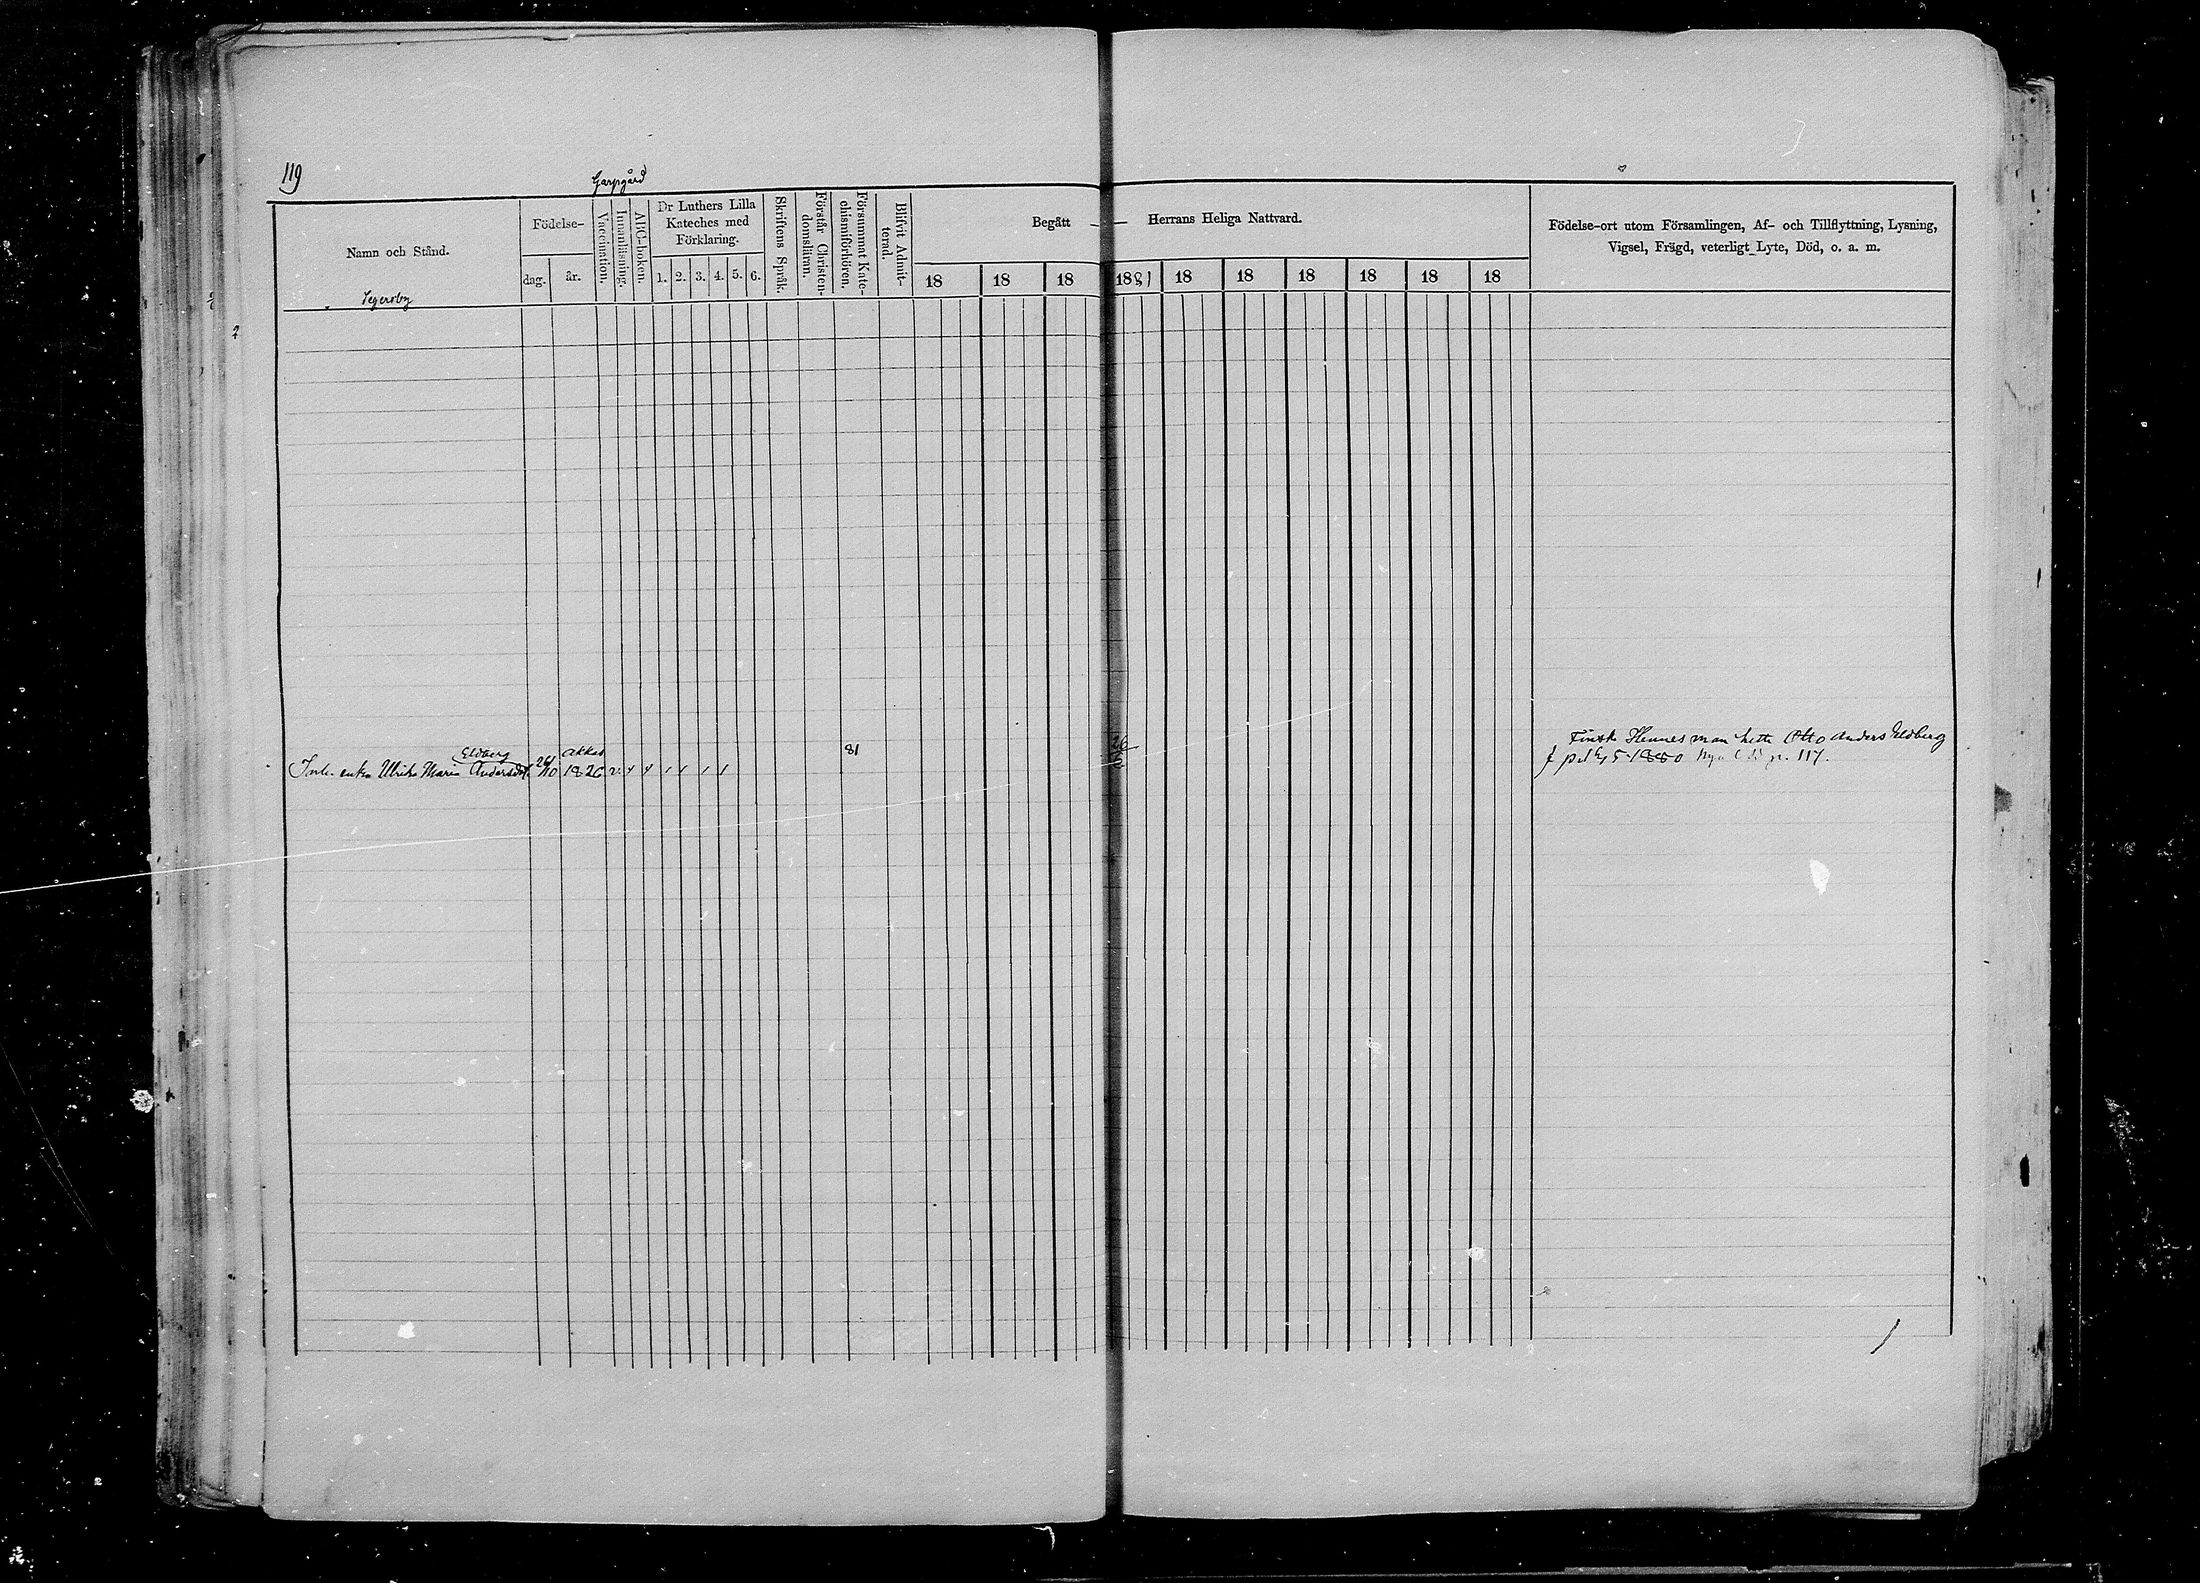 119
Garpgård
Namn och Stånd.
Födelse-
dag. år.
Vaccination.
Innanläsning.
ABC-boken.
Dr Luthers Lilla
Kateches med
Förklaring.
1. 2. 3. 4. 5. 6.
Skriftens Språk.
Förstår Christen-
domsläran.
Försummat Kate-
chismiförhören.
Blifvit Admit-
terad.
Begått — Herrans Heliga Nattvard.
18 18 18 1881 18 18 18 18 18 18
Födelse-ort utom Församlingen, Af- och Tillflyttning, Lysning,
Vigsel, Frägd, veterligt Lyte, Död, o. a. m.
Segersby
Eldberg Akkas 81 26 Finsk Hennes man hette Otto Anders Eldberg
enka Ulrika Maria Andersdot. 26/10 1826 v. + + 1 1 1 1 5 1880 117.